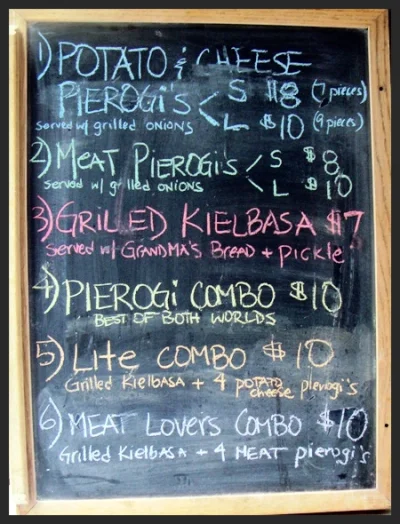 1) POTATO & CHEESE
PIEROGi'S < S $8 (7 pieces)
L $10 (9 pieces)
served w/ grilled ONIONS
2) MEAT PIEROGi's < S $8
L $10
served w/ grilled ONIONS
3) GRiLLED KIELBASA $7
served w/ GRANDMA'S BREAD + pickle
4) PIEROGi COMBO $10
BEST OF BOTH WORLDS
5) Lite COMBO $10
Grilled Kielbasa + 4 POTATO cheese pierogi's
6) MEAT LOVERS COMBO $10
Grilled Kielbasa + 4 MEAT pierogi's